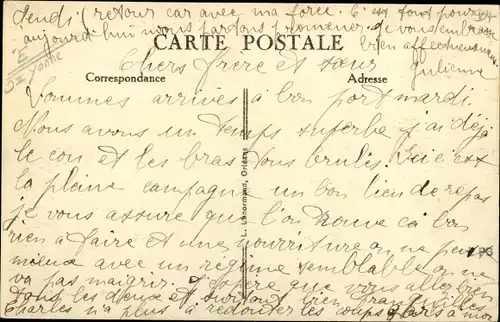 Jeudi (retour car avec ma force. C'est tout pour
aujourd'hui nous partons promener. Je vous embrasse
bien affectueusement
Julienne
CARTE POSTALE
Chers frère et sœur
Correspondance
Adresse
Sommes arrivés à bon port mardi.
Nous avons un temps superbe j'ai déjà
le cou et les bras tous brulés. Ici c'est
la pleine campagne un bon lieu de repos
je vous assure que l'on trouve ça bon
rien à faire et une nourriture on ne peut
mieux avec un régime semblable on ne
va pas maigrir. J'espère que vous allez bien
tous les deux et surtout bien tranquilles
Charles n'a plus à redouter les coups à moi
L. Lenormand, Orléans
Yonne